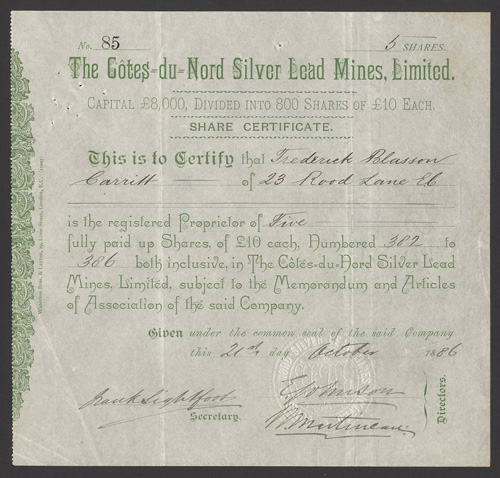 No. 85 5 SHARES.
The Côtes=du=Nord Silver Lead Mines, Limited.
CAPITAL £8,000, DIVIDED INTO 800 SHARES OF £10 EACH.
SHARE CERTIFICATE.
This is to Certify that Frederick Blasson
Carritt of 23 Rood Lane EC
is the registered Proprietor of Five
fully paid up Shares, of £10 each, Numbered 382 to
386 both inclusive, in The Côtes-du-Nord Silver Lead
Mines, Limited, subject to the Memorandum and Articles
of Association of the said Company.
Given under the common seal of the said Company
this 21st day October 1886
Frank Lightfoot
Secretary.
E Johnson
Directors.